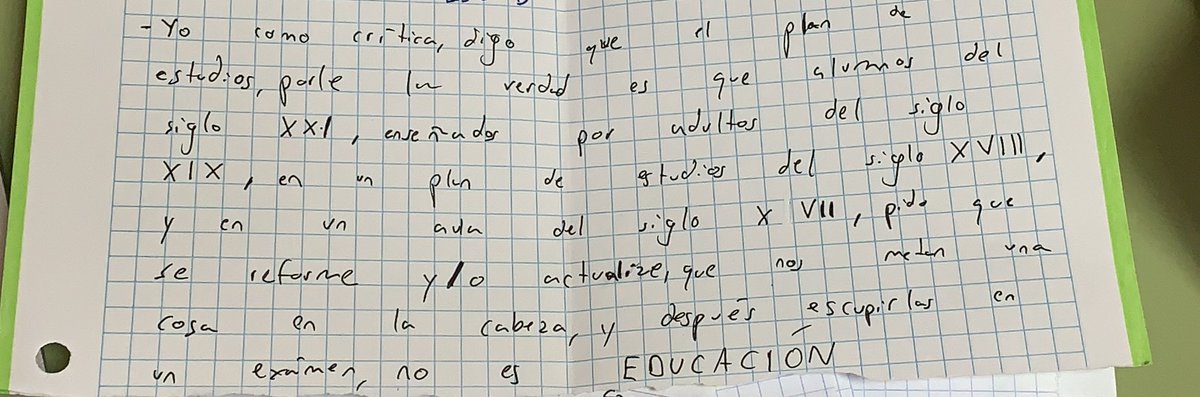 - Yo como crítica, digo que el plan de
estudios, porle la verdad es que alumnos del
siglo XXI, enseñados por adultos del siglo
XIX, en un plan de estudios del siglo XVIII,
y en un aula del siglo XVII, pido que
se reforme y/o actualize, que nos metan una
cosa en la cabeza, y después escupirlas en
un exámen, no es EDUCACIÓN